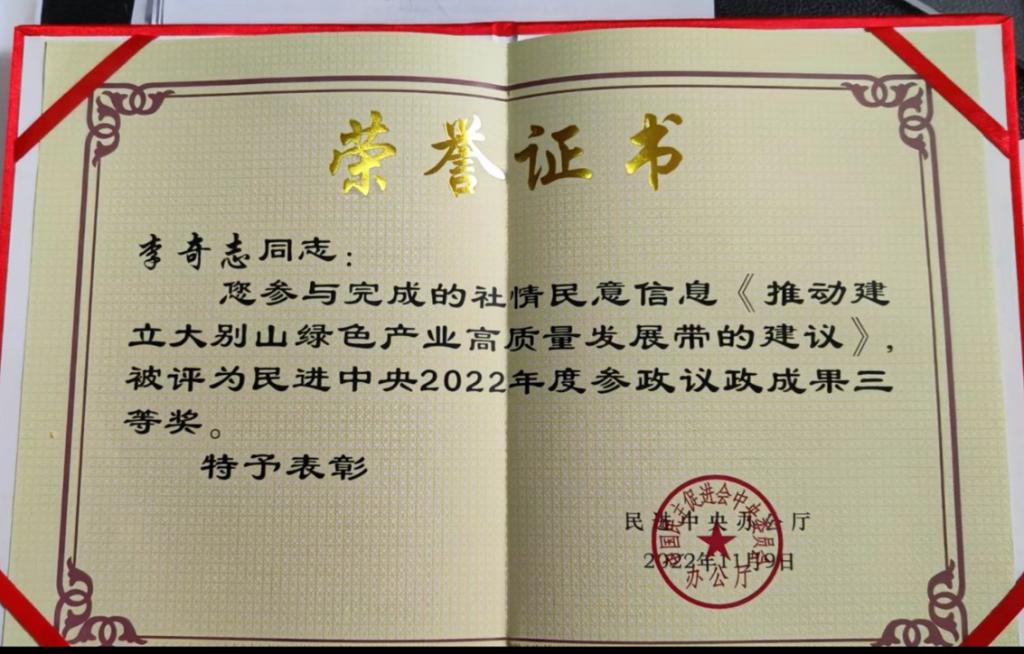 荣誉证书
李奇志同志：
您参与完成的社情民意信息《推动建
立大别山绿色产业高质量发展带的建议》，
被评为民进中央2022年度参政议政成果三
等奖。
特予表彰
民进中央办公厅
2022年11月9日
中国民主促进会中央委员会
办公厅